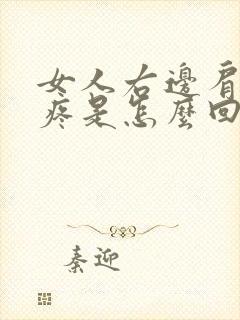 女人右邊肩
疼是怎麼回
秦迎